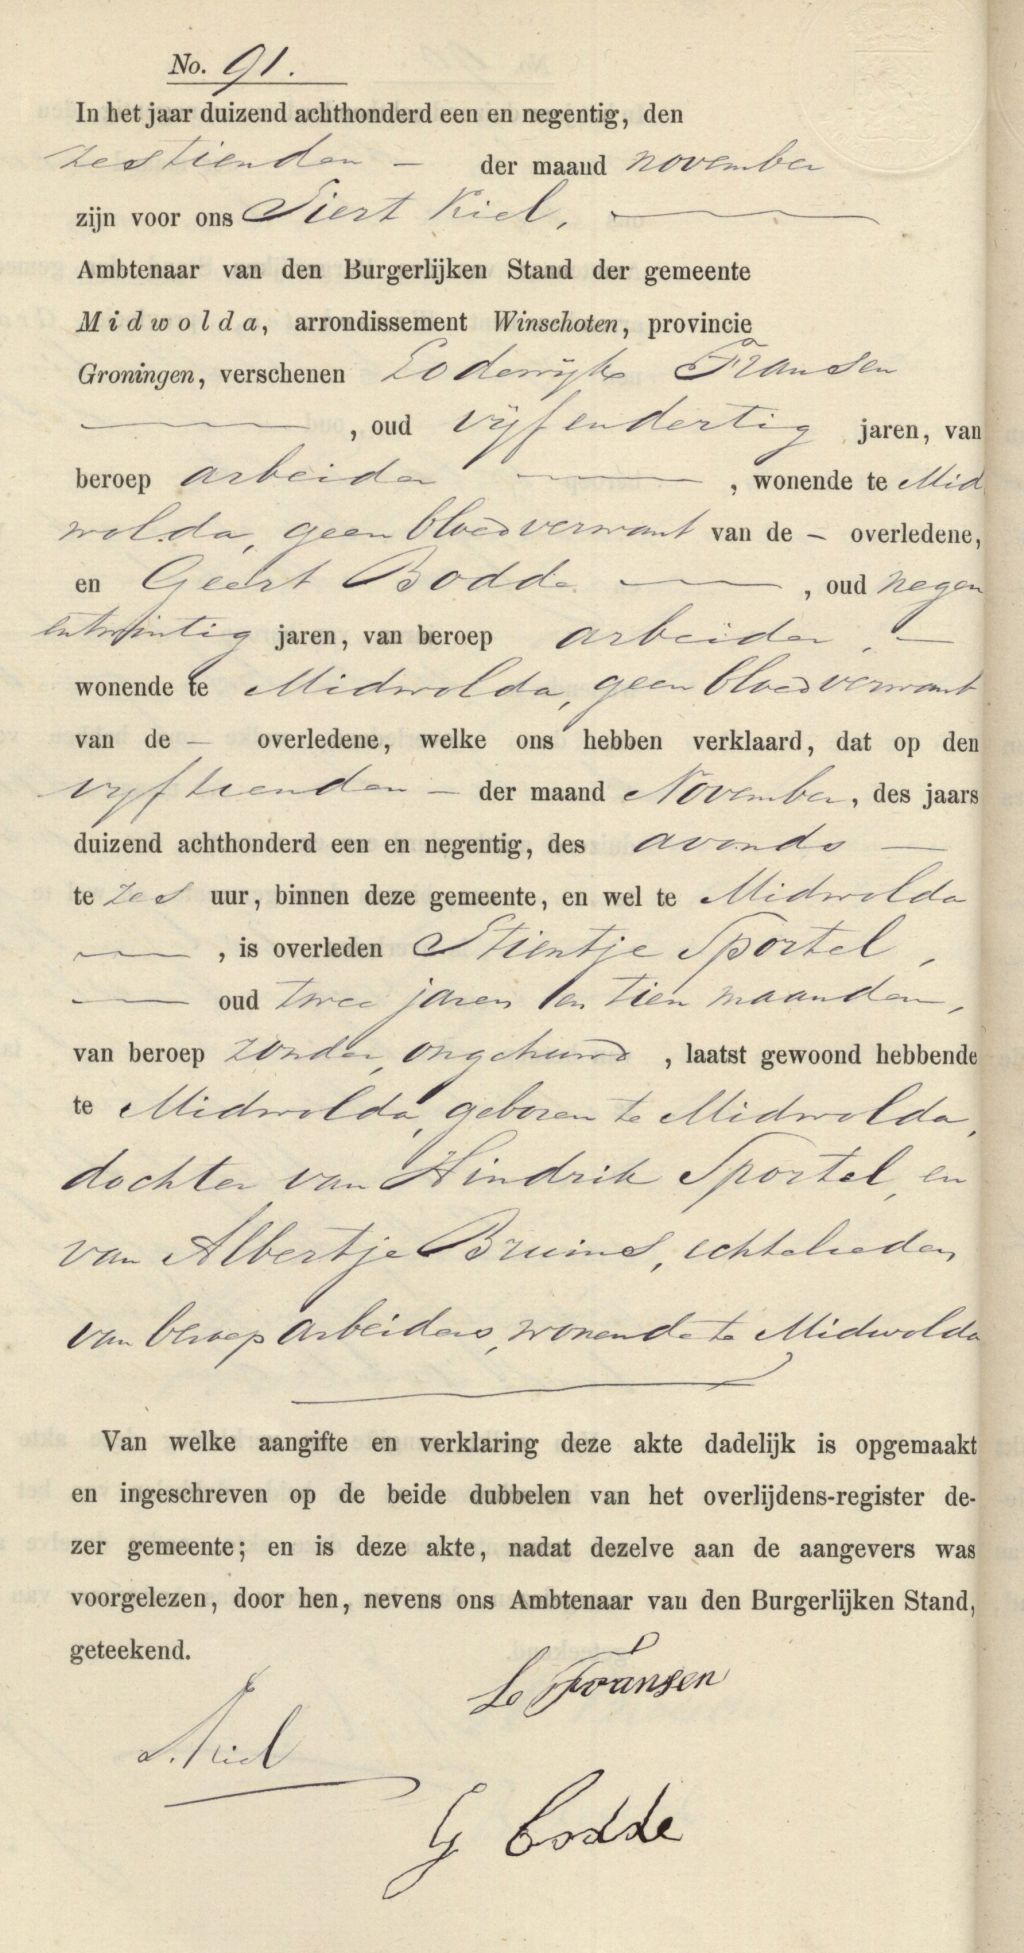 No. 91.
In het jaar duizend achthonderd een en negentig, den
zestienden – der maand november
zijn voor ons Siert Kiel,
Ambtenaar van den Burgerlijken Stand der gemeente
Midwolda, arrondissement Winschoten, provincie
Groningen, verschenen Lodewijk Fransen
, oud vijfendertig jaren, van
beroep arbeider , wonende te Mid
wolda, geen bloedverwant van de – overledene,
en Geert Bodde , oud negen
entwintig jaren, van beroep arbeider, –
wonende te Midwolda, geen bloedverwant
van de – overledene, welke ons hebben verklaard, dat op den
vijftienden – der maand November, des jaars
duizend achthonderd een en negentig, des avonds –
te zes uur, binnen deze gemeente, en wel te Midwolda
, is overleden Stientje Sportel,
oud twee jaren en tien maanden,
van beroep zonder, ongehuwd , laatst gewoond hebbende
te Midwolda, geboren te Midwolda,
dochter van Hindrik Sportel, en
van Albertje Bruins, echtelieden
van beroep arbeiders, wonende te Midwolda
Van welke aangifte en verklaring deze akte dadelijk is opgemaakt
en ingeschreven op de beide dubbelen van het overlijdens-register de-
zer gemeente; en is deze akte, nadat dezelve aan de aangevers was
voorgelezen, door hen, nevens ons Ambtenaar van den Burgerlijken Stand,
geteekend.
L Fransen
S. Kiel
G Bodde